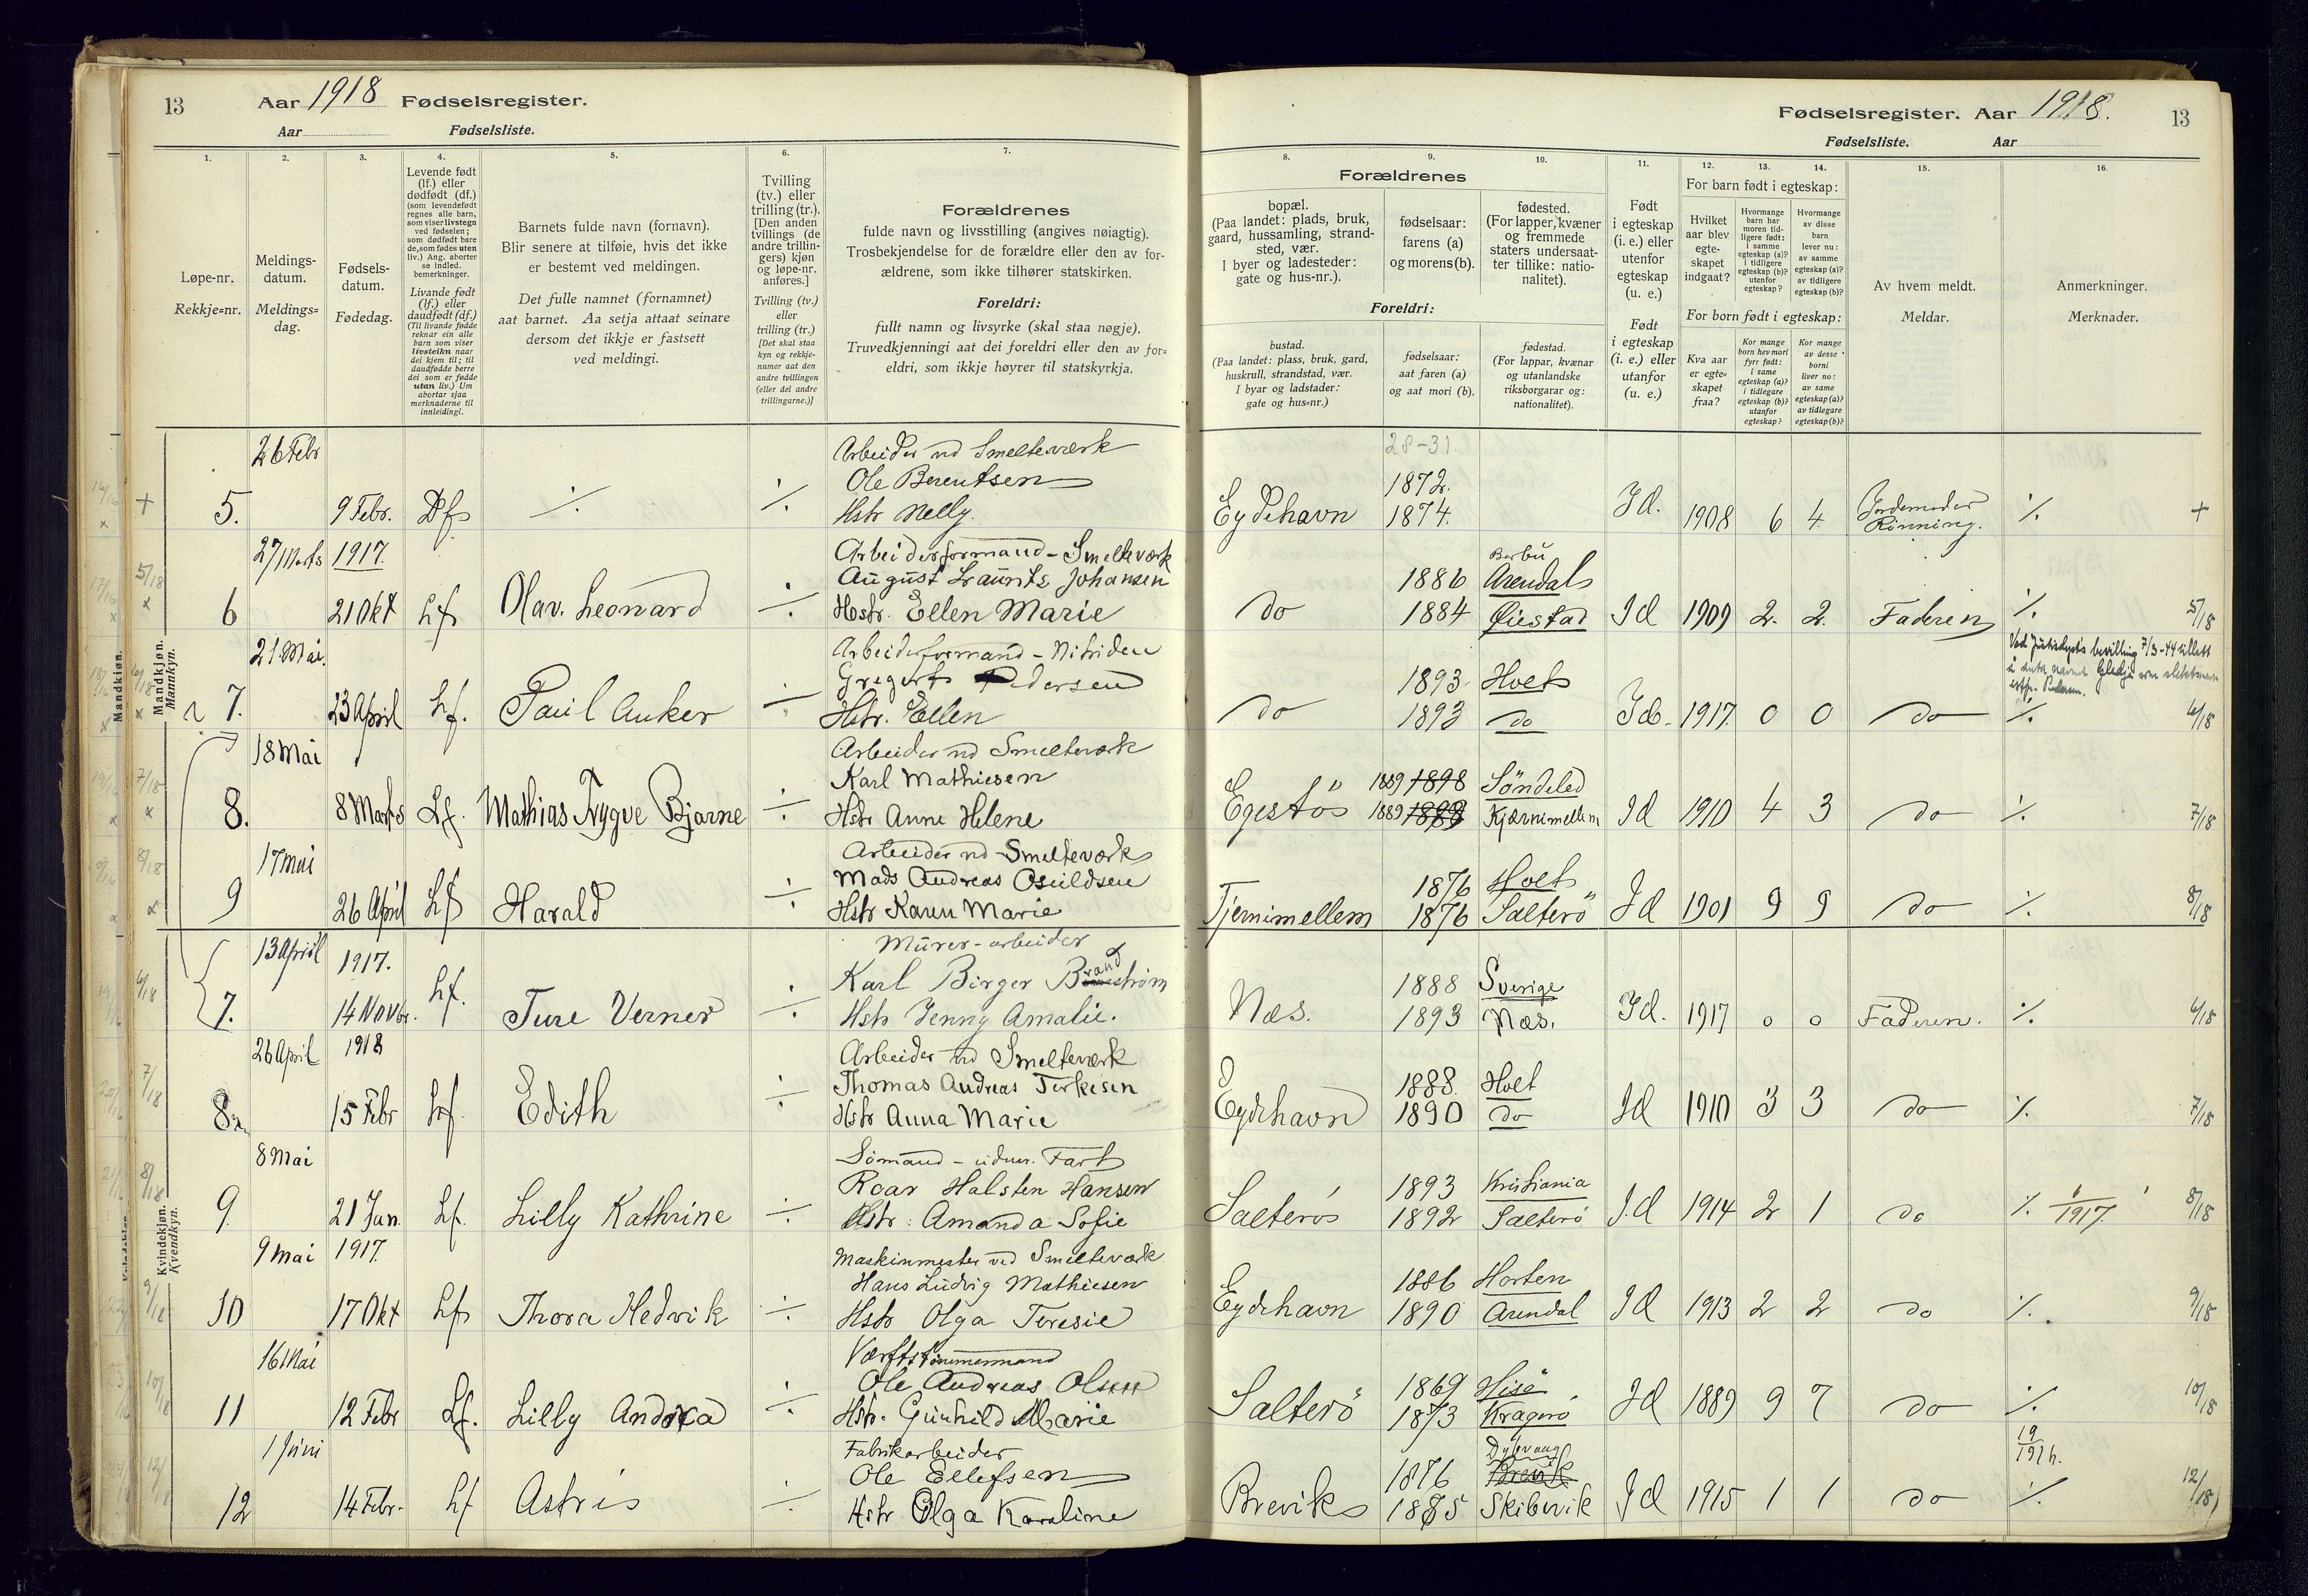 13 Aar 1918 Fødselsregister.
Aar Fødselsliste.
Fødselsregister. Aar 1918. 13
Fødselsliste. Aar
1.
Løpe-nr.
Rekkje=nr.
2.
Meldings-
datum.
Meldings=
dag.
3.
Fødsels-
datum.
Fødedag.
4.
Levende født
(lf.) eller
dødfødt (df.)
(som levendefødt
regnes alle barn,
som viser livstegn
ved fødselen;
som dødfødt bare
de, som fødes uten
liv.) Ang. aborter
se indled.
bemerkninger.
Livande født
(lf.) eller
daudfødt (df.)
(Til livande fødde
reknar ein alle
barn som viser
livsteikn naar
dei kjem til; til
daudfødde berre
dei som er fødde
utan liv.) Um
abortar sjaa
merknaderne til
innleidingi.
5.
Barnets fulde navn (fornavn).
Blir senere at tilføie, hvis det ikke
er bestemt ved meldingen.
Det fulle namnet (fornamnet)
aat barnet. Aa setja attaat seinare
dersom det ikkje er fastsett
ved meldingi.
6.
Tvilling
(tv.) eller
trilling (tr.).
[Den anden
tvillings (de
andre trillin-
gers) kjøn
og løpe-nr.
anføres.]
Tvilling (tv.)
eller
trilling (tr.)
[Det skal staa
kyn og rekkje-
numer aat den
andre tvillingen
(eller dei andre
trillingarne.)]
7.
Forældrenes
fulde navn og livsstilling (angives nøiagtig).
Trosbekjendelse for de forældre eller den av for-
ældrene, som ikke tilhører statskirken.
Foreldri:
fullt namn og livsyrke (skal staa nøgje).
Truvedkjenningi aat dei foreldri eller den av for=
eldri, som ikkje høyrer til statskyrkja.
Forældrenes
8.
bopæl.
(Paa landet: plads, bruk,
gaard, hussamling, strand-
sted, vær.
I byer og ladesteder:
gate og hus-nr.).
9.
fødselsaar:
farens (a)
og morens (b).
10.
fødested.
(For lapper, kvæner
og fremmede
staters undersaat-
ter tillike: natio-
nalitet).
Foreldri:
bustad.
(Paa landet: plass, bruk, gard,
huskrull, strandstad, vær.
I byar og ladstader:
gate og hus=nr.)
fødselsaar:
aat faren (a)
og aat mori (b).
fødestad.
(For lappar, kvænar
og utanlandske
riksborgarar og:
nationalitet).
11.
Født
i egteskap
(i. e.) eller
utenfor
egteskap
(u. e.)
Født
i egteskap
(i. e.) eller
utanfor
(u. e.)
12. 13. 14.
For barn født i egteskap:
Hvilket
aar blev
egte-
skapet
indgaat?
Hvormange
barn har
moren tid-
ligere født:
i samme
egteskap (a)?
i tidligere
egteskap (b)?
utenfor
egteskap?
Hvormange
av disse
barn
lever nu:
av samme
egteskap (a)?
av tidligere
egteskap (b)?
For born født i egteskap:
Kva aar
er egte-
skapet
fraa?
Kor mange
born hev mori
fyrr født:
i same
egteskap (a)?
i tidlegare
egteskap (b)?
utanfor
egteskap?
Kor mange
av desse
borni
liver no:
av same
egteskap (a)?
av tidlegare
egteskap (b)?
15.
Av hvem meldt.
Meldar.
16.
Anmerkninger.
Merknader.
Mandkjøn.
Mannkyn.
28-31.
26 Febr Arbeider vd Smelteværk
Ole Berentsen 1872.
5. 9 Febr. Df ./. ./. Hstr Nelly. Eydehavn 1874. Id. 1908 6 4 Jordemoder Rinning. ./. +
27 Marts 1917. Arbeiderformand - Smelteværk Barbu
August Lauritz Johansen 1886 Arendal
6 21 Okt Lf Olav. Leonard ÷ Hstr. Ellen Marie do 1884 Øiestad Id 1909 2. 2. Faderen ./. 5/18
21 Mai. Arbeiderformand - Nitriden Ved bevilling 7/3-44 tillatt
Gregert Pedersen 1893 Holt
7. 23 April Lf. Paul Anker ÷ Hstr. Ellen do 1893 do Id. 1917 0 0 do ./. 6/18
18 Mai Arbeider vd Smelteværk
Karl Mathiesen 1889 1898 Søndeled
8. 8 Marts Lf. Mathias Trygve Bjarne ÷ Hstr Anne Helene Egestøs 1889 Kjærnimellem Id 1910 4 3 do ./. 7/18
17 Mai Arbeider vd Smelteværk
Mads Andreas Osuldsen 1876 Holt
9 26 April Lf Harald ÷ Hstr Karen Marie Tjernimellem 1876 Salterö Id 1901 9 9 do ./. 8/18
Kvindekjøn.
Kvendkyn.
13 April 1917. Murer-arbeider
Karl Birger Brandstrøm 1888 Sverige
7. 14 Novbr. Lf. Ture Verner ÷ Hstr Jenny Amalie. Næs. 1893 Næs. Id. 1917 0 0 Faderen. ./. 6/18
26 April 1918 Arbeider vd Smelteværk
Thomas Andreas Terkisen 1888. Holt
8. 15 Febr Lf. Edith ÷ Hstr Anna Marie Eydehavn 1890 do Id 1910 3 3 do ./. 7/18
8 Mai Sömand - udenr. Fart
Roar Halsten Hansen 1893 Kristiania
9. 21 Jan. Lf. Lilly Kathrine ÷ Hstr. Amanda Sofie Salterös 1892 Salterö I.d 1914 2 1 do ./. 1/1917. 8/18
9 Mai 1917. Maskinmester ved Smelteværk
Hans Ludvig Mathiesen 1886 Horten
10 17 Okt Lf Thora Hedvik ÷ Hstr Olga Teresie Eydehavn 1890 Arendal Id 1913 2 2 do ./. 9/18
16 Mai Værftstömmermand
Ole Andreas Olsen 1869 Hisö
11 12 Febr Lf. Lilly Andrea ÷ Hstr. Gunhild Marie Salterö 1873 Kragerö Id 1889 9 7 do ./. 10/18
1 Juni Fabrikarbeider Dybvaag 19/1916.
Ole Ellefsen 1876 Brevik
12 14 Febr. Lf Astris ÷ Hstr Olga Karoline Brevik 1885 Skibvik Id 1915 1 1 do ./. 12/18